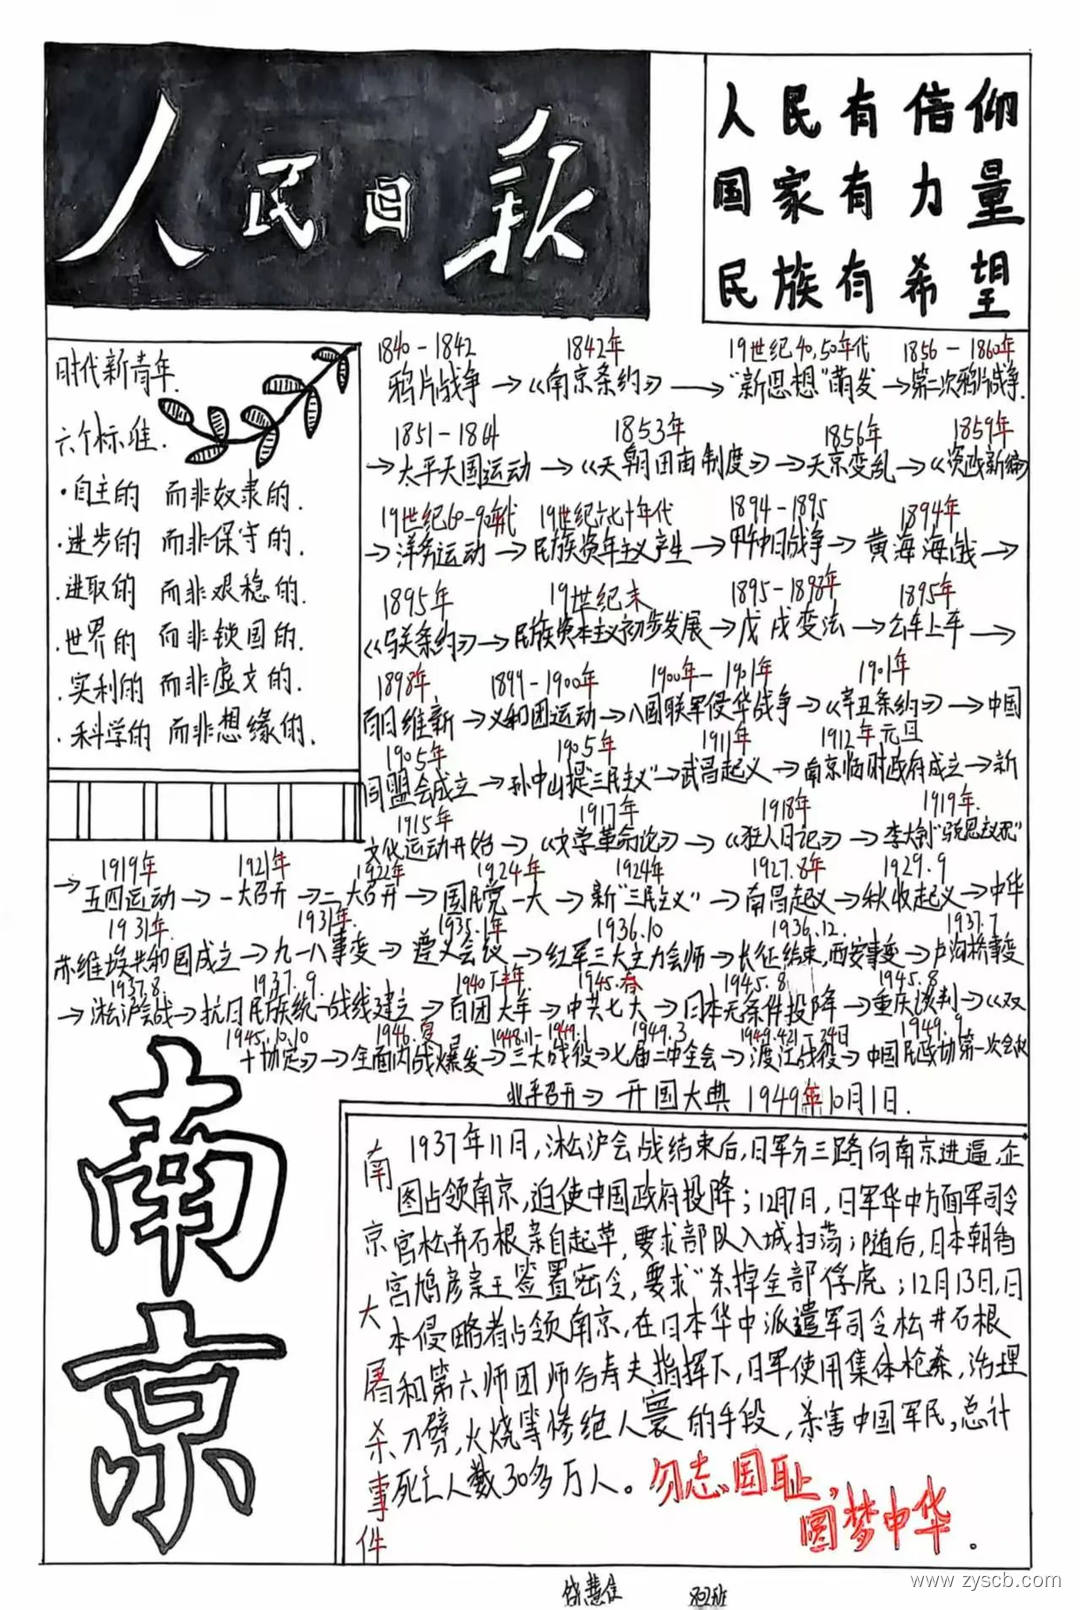 人民日报
人民有信仰
国家有力量
民族有希望
时代新青年.
六个标准.
·自主的 而非奴隶的.
·进步的 而非保守的.
.进取的 而非艰稳的.
.世界的 而非锁国的.
.实利的 而非虚文的.
.科学的 而非想缘的.
1840-1842 1842年 19世纪40,50年代 1856-1860年
鸦片战争→《南京条约》→"新思想"萌发→第二次鸦片战争.
1851-1864 1853年 1856年 1859年
→太平天国运动→《天朝田亩制度》→天京变乱→《资政新编》
19世纪60-90年代 19世纪六七十年代 1894-1895 1894年
→洋务运动→民族资本主义产生→甲午中日战争→黄海海战→
1895年 19世纪末 1895-1898年 1895年
《马关条约》→民族资本主义初步发展→戊戌变法→公车上书→
1898年 1899-1900年 1900年-1901年 1901年
百日维新→义和团运动→八国联军侵华战争→《辛丑条约》→中国
1905年 1905年 1911年 1912年元旦
同盟会成立→孙中山提三民主义"→武昌起义→南京临时政府成立→新
1915年 1917年 1918年 1919年.
文化运动开始→《文学革命论》→《狂人日记》→李大钊
1919年 1921年 1922年 1924年 1924年 1927.8年 1929.9
→五四运动→一大召开→二大召开→国民党一大→新"三民主义"→南昌起义→秋收起义→中华
1931年. 1931年. 1935.1年 1936.10 1936.12. 1937.7
苏维埃共和国成立→九一八事变→遵义会议→红军三大主力会师→长征结束,西安事变→卢沟桥事变
1937.8. 1937.9. 1940下半年 1945.春 1945.8. 1945.8
→淞沪会战→抗日民族统一战线建立→百团大军→中共七大→日本无条件投降→重庆谈判→《双
1945.10.10 1946.夏 1948.11-1949.1 1949.3 1949.4.21-24日 1949.9
十协定》→全面内战爆发→三大战役→七届二中全会→渡江战役→中国民政协第一次会议
北平召开→开国大典 1949年10月1日.
南京
南京大屠杀事件
1937年11日,淞沪会战结束后,日军分三路向南京进逼,企
图占领南京,迫使中国政府投降;12月7日,日军华中方面军司令
官松井石根亲自起草,要求部队入城扫荡;随后,日本朝香
宫鸠彦亲王签署密令,要求"杀掉全部俘虎;12月13日,日
本侵略者占领南京,在日本华中派遣军司令松井石根
和第六师团师谷寿夫指挥下,日军使用集体枪杀,治理
刀劈,火烧等惨绝人寰的手段,杀害中国军民,总计
死亡人数30多万人。
勿志国耻,
圆梦中华。
802班
www.zyscb.com